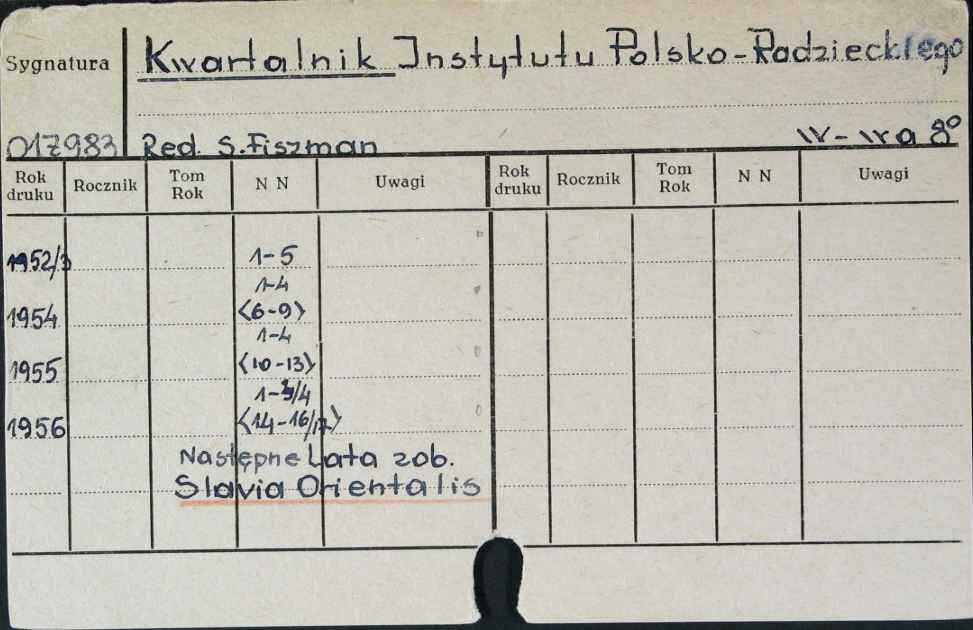 Sygnatura Kwartalnik Instytutu Polsko-Radzieckiego
017983 Red. S. Fiszman W-wa 8°
Rok druku Rocznik Tom Rok N N Uwagi Rok druku Rocznik Tom Rok N N Uwagi
1952/3 1-5
1-4
1954 <6-9>
1-4
1955 <10-13>
1-3/4
1956 <14-16/17>
Następne Lata zob.
Slavia Orientalis